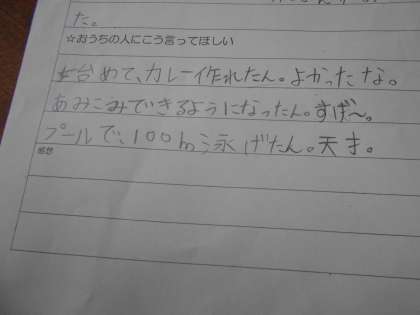 た。
☆おうちの人にこう言ってほしい
始めて、カレー作れたん。よかったな。
あみこみできるようになったん。すげ〜。
プールで、100m泳げたん。天才。
感想